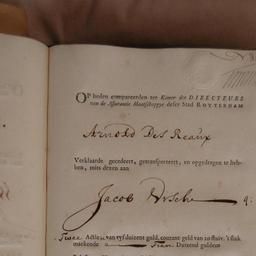 OP heden compareerden ter Kamer der DIRECTEURS
van de Assurantie Maatschappye deser Stad ROTTERDAM
Arnold Des Reaux
Verklaarde gecedeert, getransporteert, en opgedragen te heb-
ben, mits dezen aan
Jacob
Twee Actien van vyf duizent guld. courant geld van 20 stuiv. 't stuk
makende Tien Duizend guldens